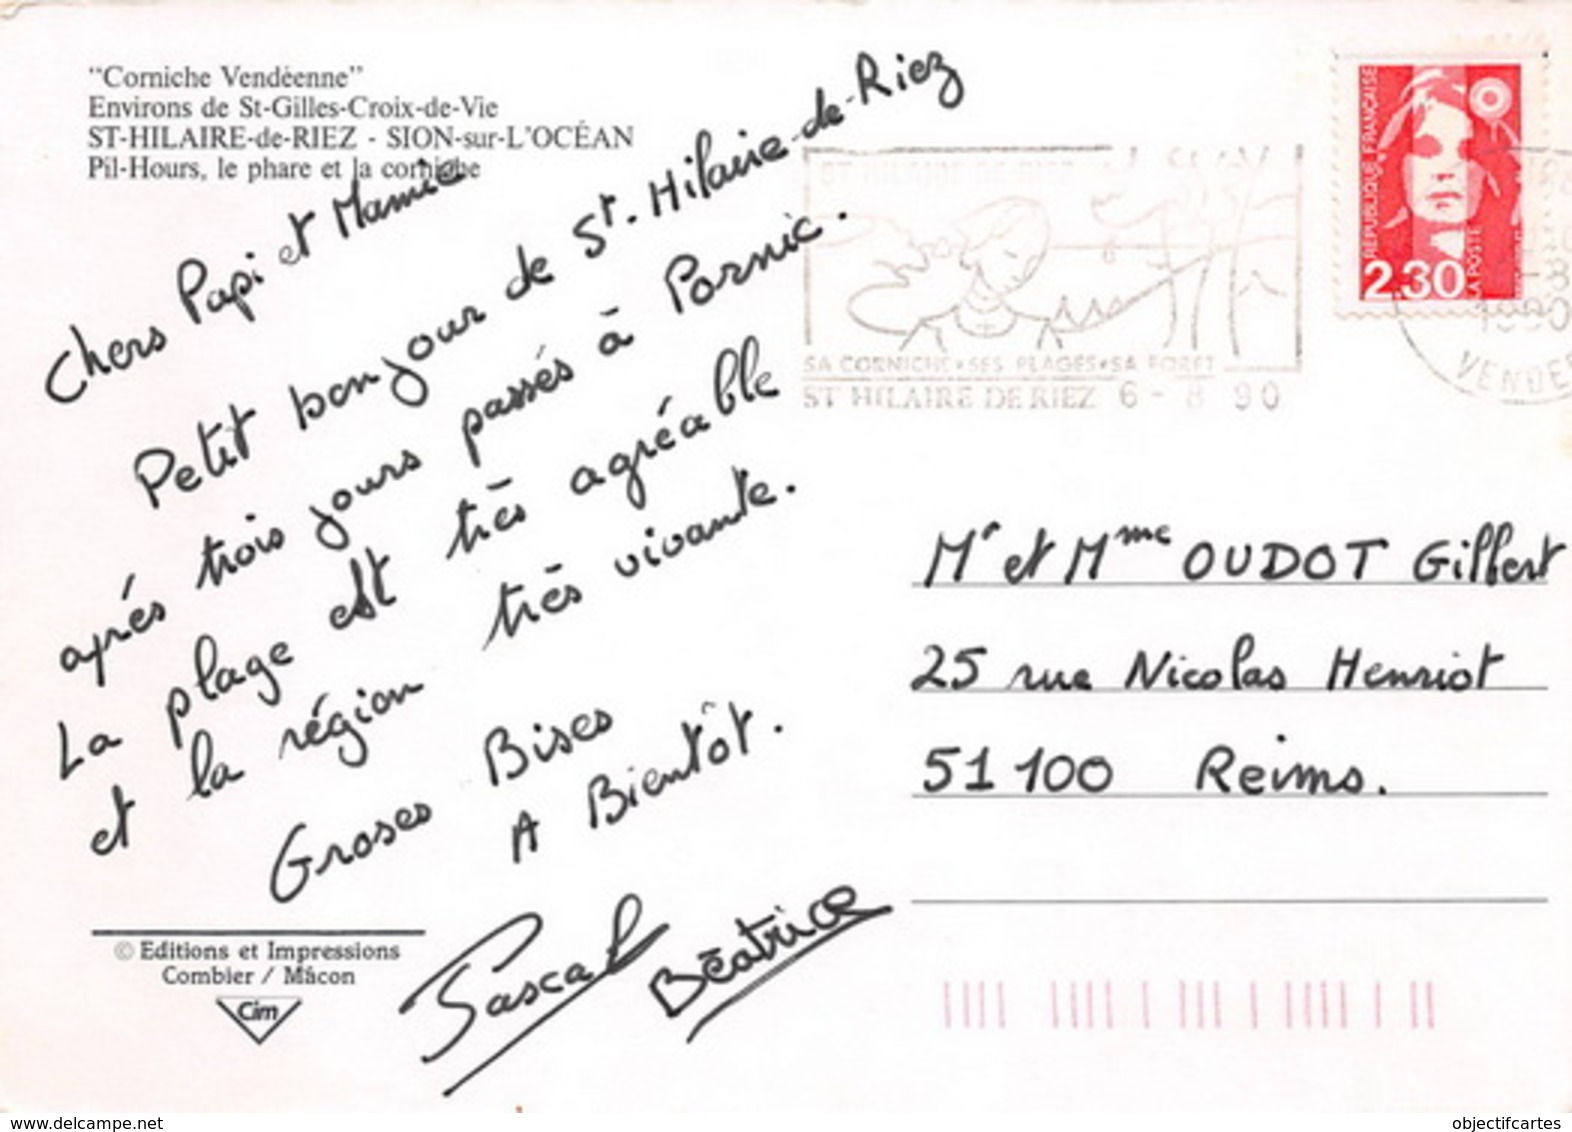 "Corniche Vendéenne"
Environs de St-Gilles-Croix-de-Vie
ST-HILAIRE-de-RIEZ - SION-sur-L'OCÉAN
Pil-Hours, le phare et la corniche
Chers Papi et Mamie
Petit bonjour de St. Hilaire-de-Riez
après trois jours passés à Pornic.
La plage est très agréable
et la région très vivante.
Groses Bises
A Bientôt.
Pascal
Béatrice
© Editions et Impressions
Combier / Mâcon
Cim
ST HILAIRE DE RIEZ
SA CORNICHE • SES PLAGES • SA FORET
ST HILAIRE DE RIEZ 6 - 8 90
RÉPUBLIQUE FRANÇAISE
2,30
LA POSTE
1990
VENDEE
Mr et Mme OUDOT Gilbert
25 rue Nicolas Henriot
51100 Reims.
www.delcampe.net
objectifcartes